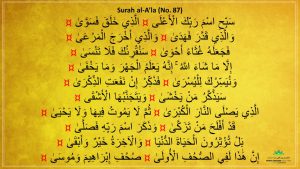 Surah al-A'la (No. 87)
سَبِّحِ اسْمَ رَبِّكَ الْأَعْلَى ¤ الَّذِي خَلَقَ فَسَوَّىٰ ¤
وَالَّذِي قَدَّرَ فَهَدَىٰ ¤ وَالَّذِي أَخْرَجَ الْمَرْعَىٰ ¤
فَجَعَلَهُ غُثَاءً أَحْوَىٰ ¤ سَنُقْرِئُكَ فَلَا تَنْسَىٰ ¤
إِلَّا مَا شَاءَ اللَّهُ ۚ إِنَّهُ يَعْلَمُ الْجَهْرَ وَمَا يَخْفَىٰ ¤
وَنُيَسِّرُكَ لِلْيُسْرَىٰ ¤ فَذَكِّرْ إِنْ نَفَعَتِ الذِّكْرَىٰ ¤
سَيَذَّكَّرُ مَنْ يَخْشَىٰ ¤ وَيَتَجَنَّبُهَا الْأَشْقَى ¤
الَّذِي يَصْلَى النَّارَ الْكُبْرَىٰ ¤ ثُمَّ لَا يَمُوتُ فِيهَا وَلَا يَحْيَىٰ ¤
قَدْ أَفْلَحَ مَنْ تَزَكَّىٰ ¤ وَذَكَرَ اسْمَ رَبِّهِ فَصَلَّىٰ ¤
بَلْ تُؤْثِرُونَ الْحَيَاةَ الدُّنْيَا ¤ وَالْآخِرَةُ خَيْرٌ وَأَبْقَىٰ ¤
إِنَّ هَٰذَا لَفِي الصُّحُفِ الْأُولَىٰ ¤ صُحُفِ إِبْرَاهِيمَ وَمُوسَىٰ ¤